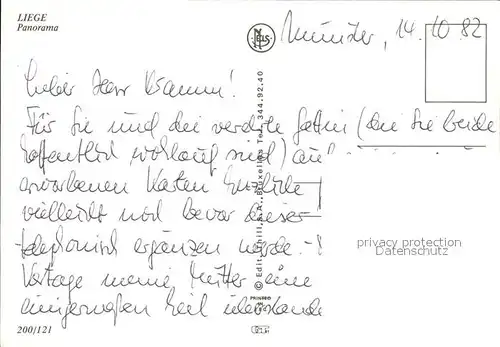 LIEGE
Panorama
NELS
Münster, 14.10.82
Lieber Herr Kramm!
Für Sie und die verehrte Gattin (die Sie beide
hoffentlich wohlauf sind) auf
erworbenen Karten Grüße
vielleicht noch bevor dieser
telephonisch ergänzen werde.
Vortage meine Mutter eine
einigermaßen heil überstande
© Edit. Thill, S.A., Bruxelles Tel. 344.92.40
PRINTED
privacy protection
Datenschutz
200/121